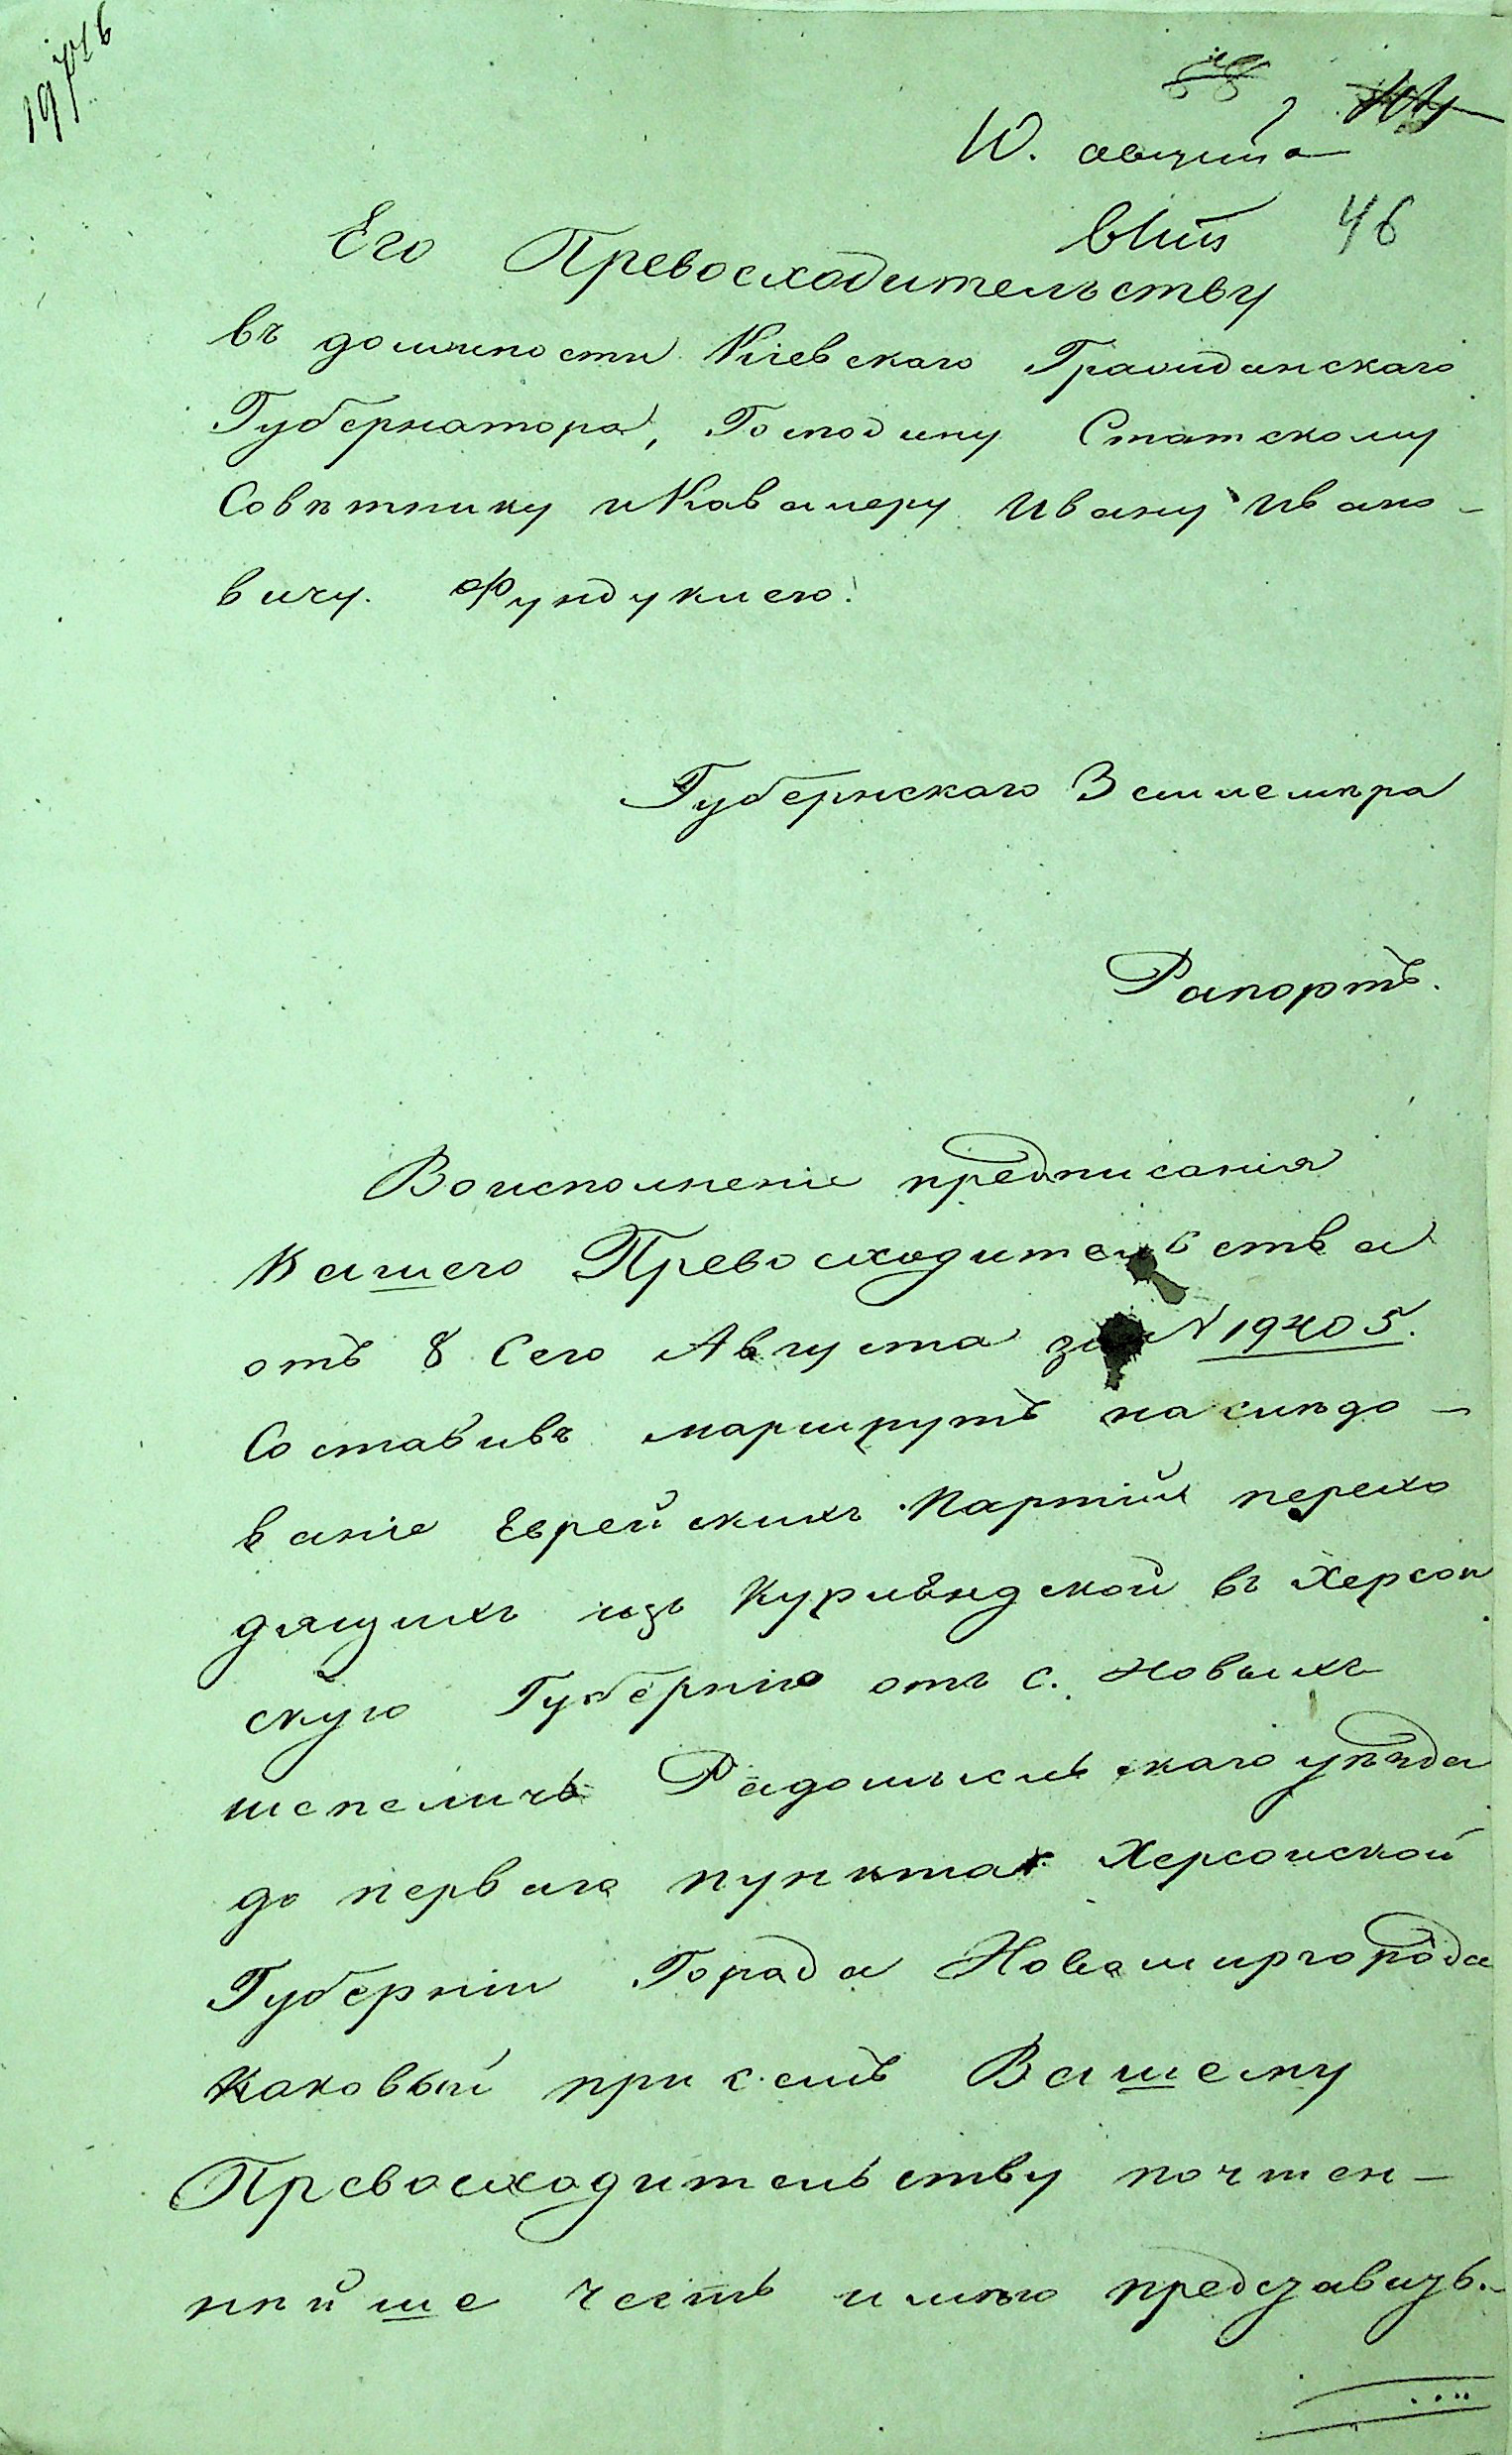 10. августа
46
Его Превосходительству
въ должности Кіевскаго Гражданскаго
Губернатора, Господину Статскому
Совѣтнику и Кавалеру Ивану Ивано-
вичу. Фундуклею.
Губернскаго Землемѣра
Рапортъ.
Во исполненіе предписанія
Вашего Превосходительства
отъ 8 Сего Августа за N 19405.
Составивъ маршрутъ на слѣдо-
ваніе Еврейскихъ Партій перехо
дящихъ изъ Курляндской въ Херсон
скую Губернію отъ с. Новыхъ
шепеличь Радомысльскаго уѣзда
до перваго пункта Херсонской
Губерніи Города Новомиргорода
каковый при семъ Вашему
Превосходительству почтен-
нѣйше честь имѣю представить.